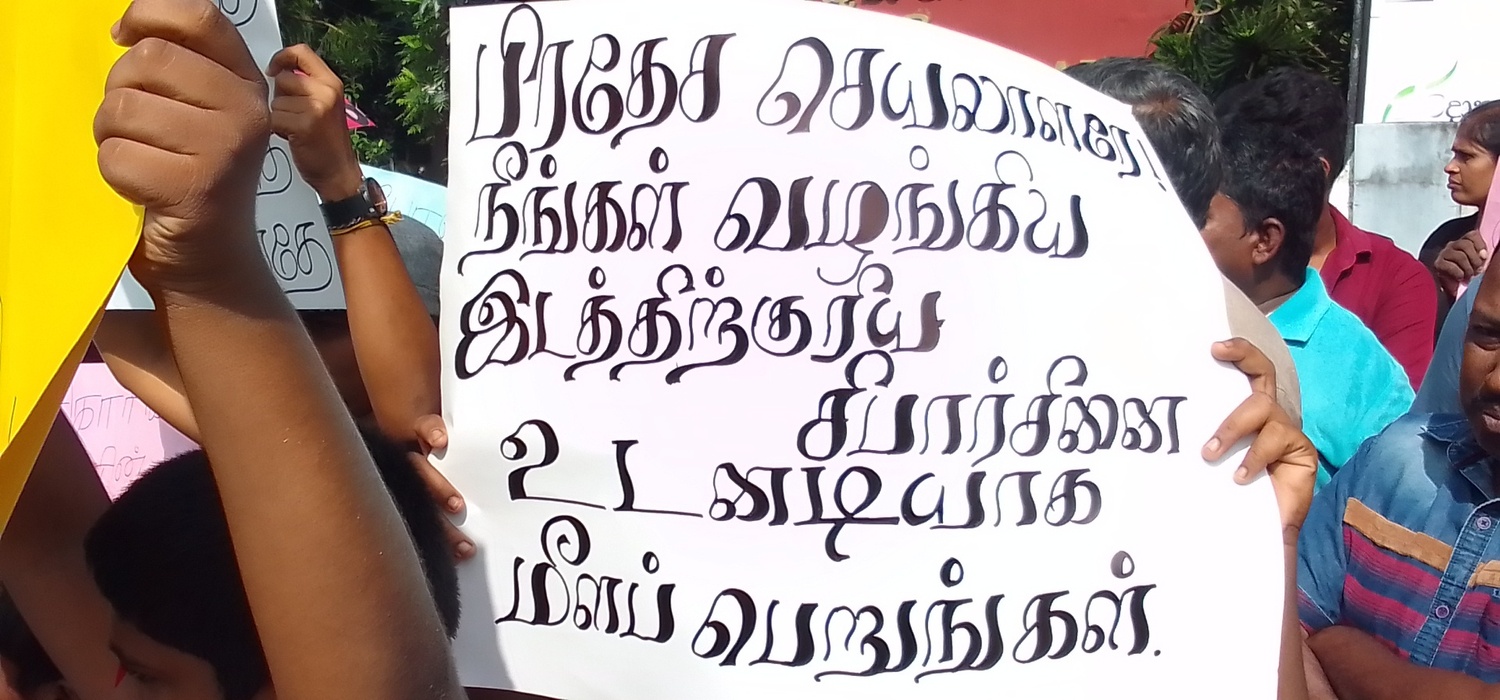 பிரதேச செயலாளரே!
நீங்கள் வழங்கிய
இடத்திற்குரிய
சிபார்சினை
உடனடியாக
மீளப் பெறுங்கள்.